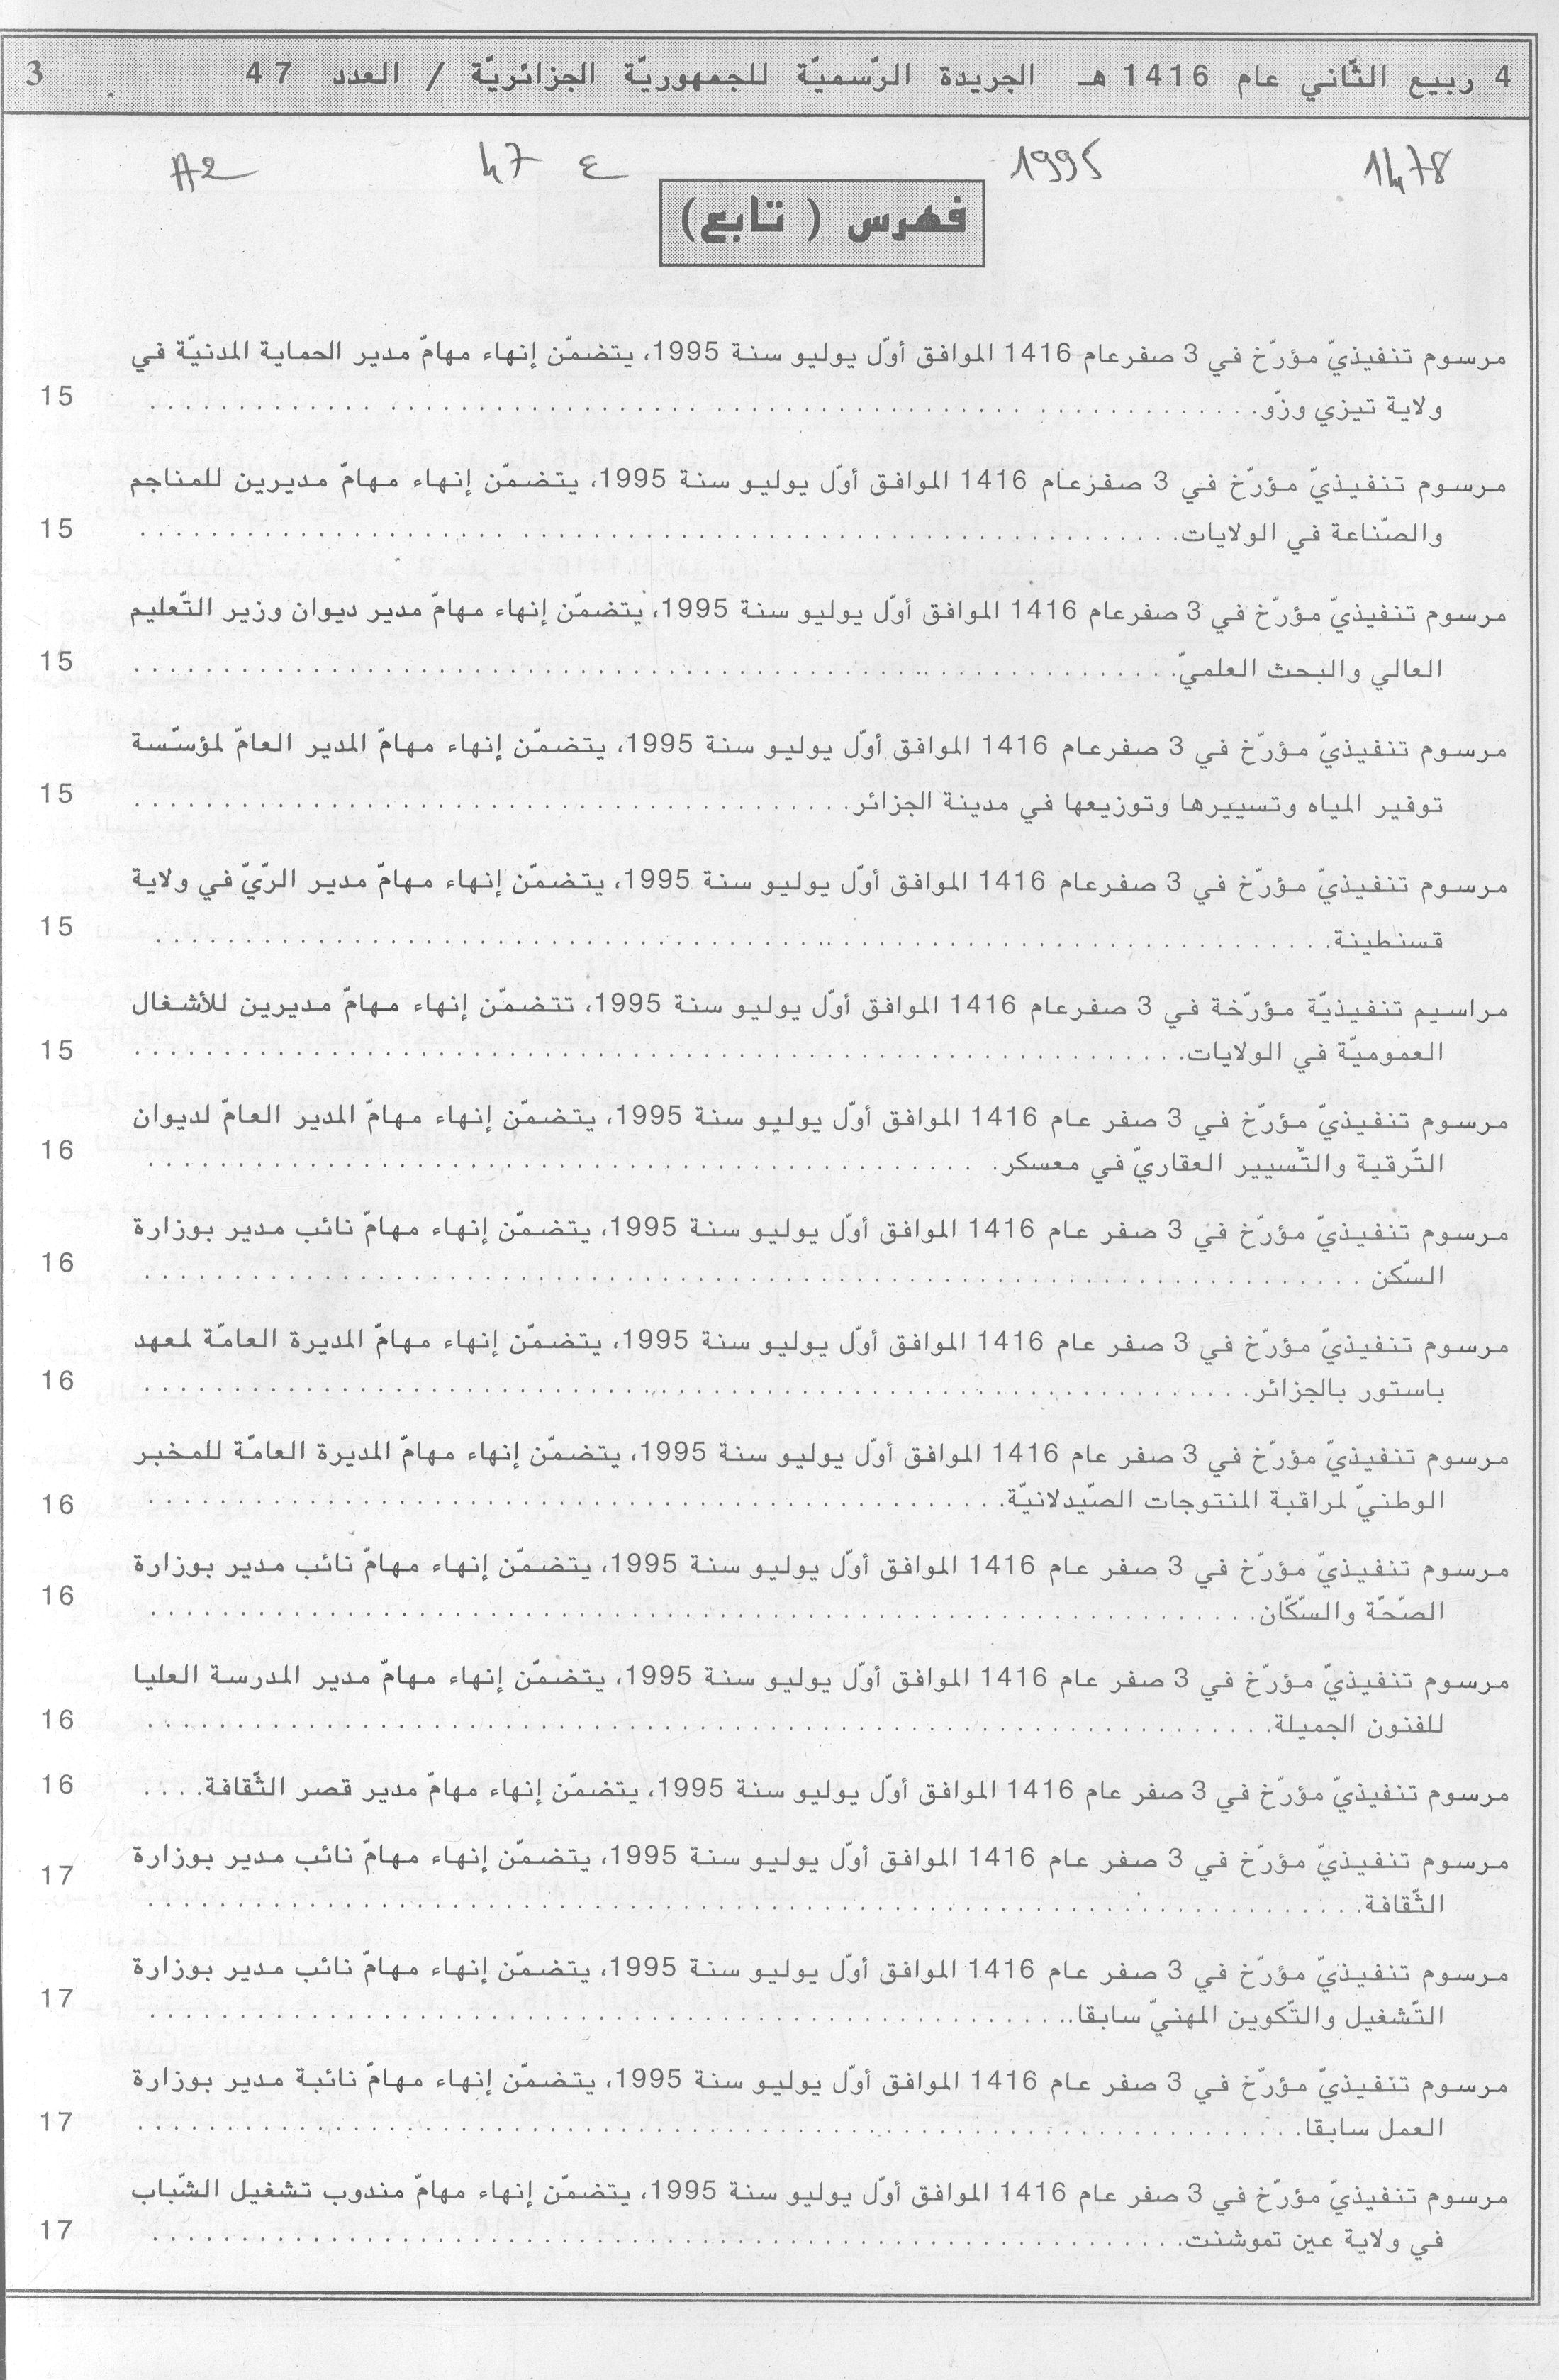 4 ربيع الثّاني عام 1416 هـ الجريدة الرّسميّة للجمهوريّة الجزائريّة / العدد 47 3
1478 1995 ع 47 A2
فهرس ( تابع)
مرسوم تنفيذيّ مؤرّخ في 3 صفرعام 1416 الموافق أوّل يوليو سنة 1995، يتضمّن إنهاء مهامّ مدير الحماية المدنيّة في
ولاية تيزي وزّو. . . . . . . . . . 15
مرسوم تنفيذيّ مؤرّخ في 3 صفرعام 1416 الموافق أوّل يوليو سنة 1995، يتضمّن إنهاء مهامّ مديرين للمناجم
والصّناعة في الولايات. . . . . . . . . . 15
مرسوم تنفيذيّ مؤرّخ في 3 صفرعام 1416 الموافق أوّل يوليو سنة 1995، يتضمّن إنهاء مهامّ مدير ديوان وزير التّعليم
العالي والبحث العلميّ. . . . . . . . . . 15
مرسوم تنفيذيّ مؤرّخ في 3 صفرعام 1416 الموافق أوّل يوليو سنة 1995، يتضمّن إنهاء مهامّ المدير العامّ لمؤسّسة
توفير المياه وتسييرها وتوزيعها في مدينة الجزائر. . . . . . . . . . 15
مرسوم تنفيذيّ مؤرّخ في 3 صفرعام 1416 الموافق أوّل يوليو سنة 1995، يتضمّن إنهاء مهامّ مدير الرّيّ في ولاية
قسنطينة. . . . . . . . . . 15
مراسيم تنفيذيّة مؤرّخة في 3 صفرعام 1416 الموافق أوّل يوليو سنة 1995، تتضمّن إنهاء مهامّ مديرين للأشغال
العموميّة في الولايات. . . . . . . . . . 15
مرسوم تنفيذيّ مؤرّخ في 3 صفر عام 1416 الموافق أوّل يوليو سنة 1995، يتضمّن إنهاء مهامّ المدير العامّ لديوان
التّرقية والتّسيير العقاريّ في معسكر. . . . . . . . . . 16
مرسوم تنفيذيّ مؤرّخ في 3 صفر عام 1416 الموافق أوّل يوليو سنة 1995، يتضمّن إنهاء مهامّ نائب مدير بوزارة
السّكن . . . . . . . . . . 16
مرسوم تنفيذيّ مؤرّخ في 3 صفر عام 1416 الموافق أوّل يوليو سنة 1995، يتضمّن إنهاء مهامّ المديرة العامّة لمعهد
باستور بالجزائر. . . . . . . . . . 16
مرسوم تنفيذيّ مؤرّخ في 3 صفر عام 1416 الموافق أوّل يوليو سنة 1995، يتضمّن إنهاء مهامّ المديرة العامّة للمخبر
الوطنيّ لمراقبة المنتوجات الصّيدلانيّة. . . . . . . . . . 16
مرسوم تنفيذيّ مؤرّخ في 3 صفر عام 1416 الموافق أوّل يوليو سنة 1995، يتضمّن إنهاء مهامّ نائب مدير بوزارة
الصّحّة والسّكّان. . . . . . . . . . 16
مرسوم تنفيذيّ مؤرّخ في 3 صفر عام 1416 الموافق أوّل يوليو سنة 1995، يتضمّن إنهاء مهامّ مدير المدرسة العليا
للفنون الجميلة. . . . . . . . . . 16
مرسوم تنفيذيّ مؤرّخ في 3 صفر عام 1416 الموافق أوّل يوليو سنة 1995، يتضمّن إنهاء مهامّ مدير قصر الثّقافة. . . . 16
مرسوم تنفيذيّ مؤرّخ في 3 صفر عام 1416 الموافق أوّل يوليو سنة 1995، يتضمّن إنهاء مهامّ نائب مدير بوزارة
الثّقافة. . . . . . . . . . 17
مرسوم تنفيذيّ مؤرّخ في 3 صفر عام 1416 الموافق أوّل يوليو سنة 1995، يتضمّن إنهاء مهامّ نائب مدير بوزارة
التّشغيل والتّكوين المهنيّ سابقا. . . . . . . . . . 17
مرسوم تنفيذيّ مؤرّخ في 3 صفر عام 1416 الموافق أوّل يوليو سنة 1995، يتضمّن إنهاء مهامّ نائبة مدير بوزارة
العمل سابقا. . . . . . . . . . 17
مرسوم تنفيذيّ مؤرّخ في 3 صفر عام 1416 الموافق أوّل يوليو سنة 1995، يتضمّن إنهاء مهامّ مندوب تشغيل الشّباب
في ولاية عين تموشنت. . . . . . . . . . 17